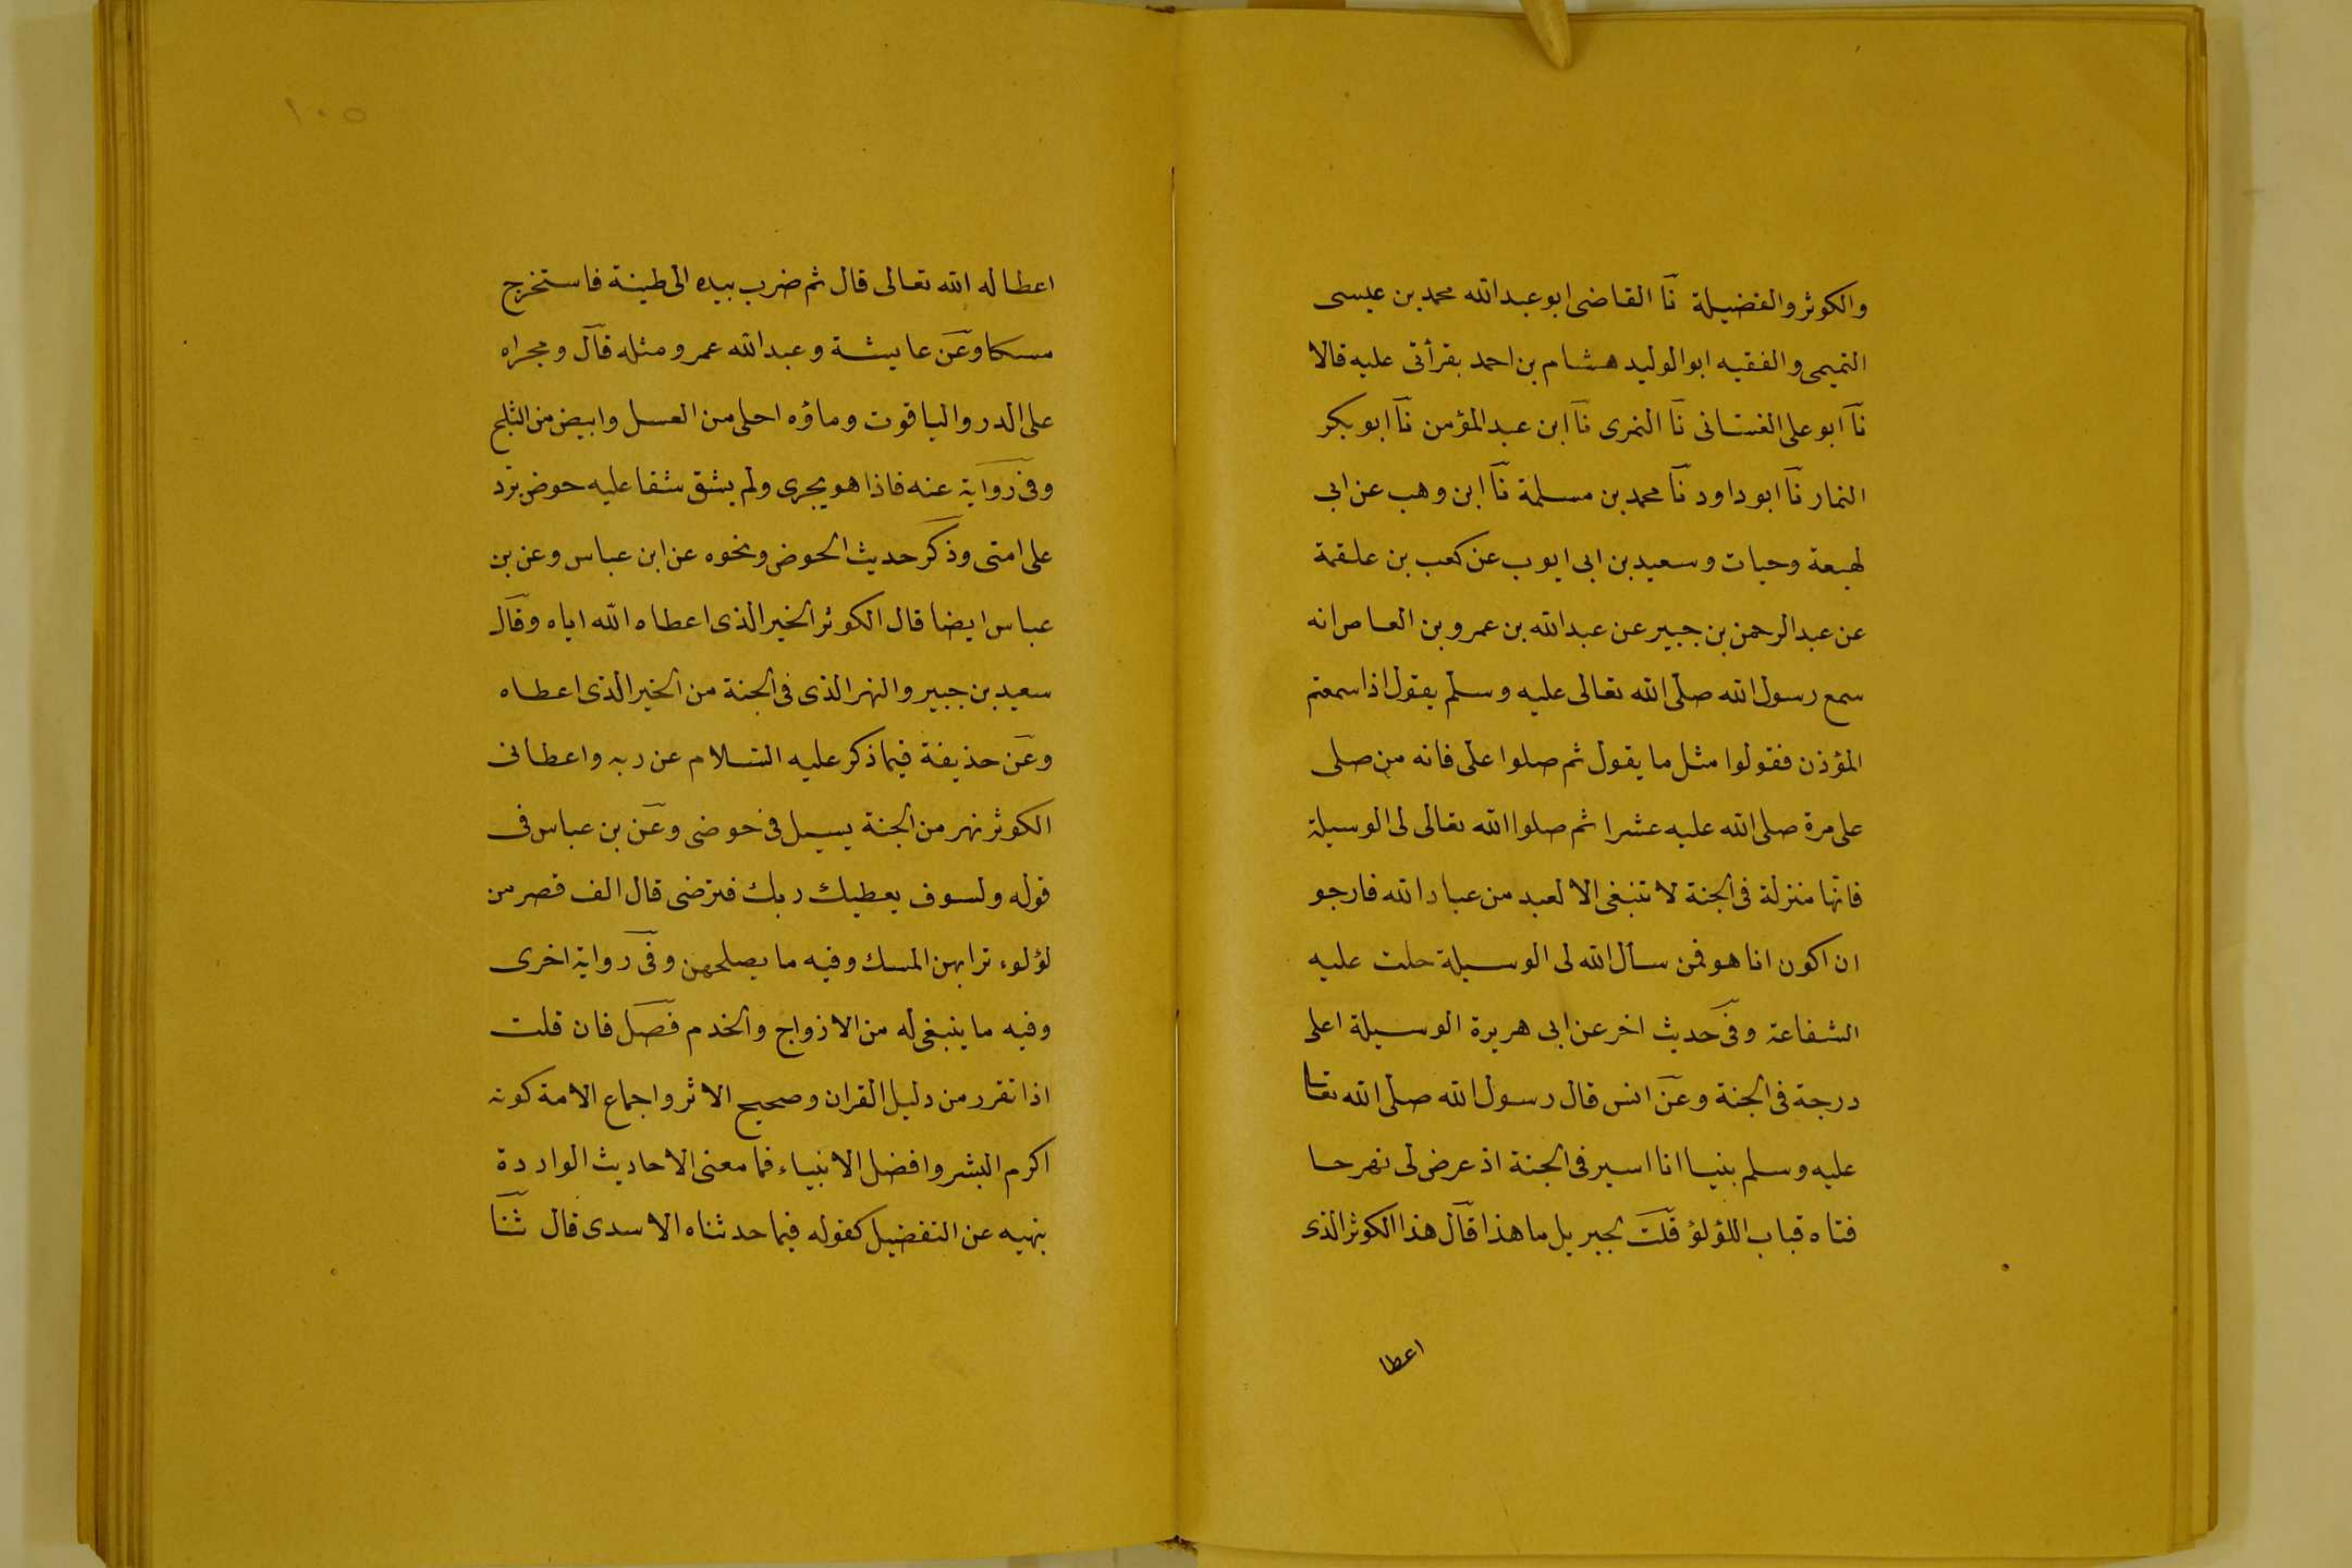 والكوثر والفضيلة نا القاضى ابو عبد الله محمد بن عيسى
التميمى والفقيه ابو الوليد هشام بن احمد بقرأتى عليه قالا
نا ابو على الغسانى نا النمرى نا ابن عبد المؤمن نا ابو بكر
التمار نا ابو داود نا محمد بن مسلمة نا ابن وهب عن ابى
لهيعة وحيات وسعيد بن ابى ايوب عن كعب بن علقمة
عن عبد الرحمن بن جبير عن عبد الله بن عمرو بن العاص انه
سمع رسول الله صلى الله تعالى عليه وسلم يقول اذا سمعتم
المؤذن فقولوا مثل ما يقول ثم صلوا على فانه من صلى
على مرة صلى الله عليه عشرا ثم صلوا الله تعالى لى الوسيلة
فانها منزلة فى الجنة لا تنبغى الا لعبد من عباد الله فارجو
ان اكون انا هو فمن سأل الله لى الوسيلة حلت عليه
الشفاعة وفى حديث اخر عن ابى هريرة الوسيلة اعلى
درجة فى الجنة وعن انس قال رسول الله صلى الله تعا
عليه وسلم بنيا انا اسير فى الجنة اذ عرض لى نهر حا
فتاه قباب اللؤلؤ قلت لجبريل ما هذا قال هذا الكوثر الذى
اعطا
١٠٥
اعطا له الله تعالى قال ثم ضرب بيده الى طينة فاستخرج
مسكا وعن عايشة وعبد الله عمرو مثله قال ومجراه
على الدر والياقوت وماؤه احلى من العسل وابيض من الثلج
وفى رواية عنه فاذا هو يجرى ولم يشق شقا عليه حوض ترد
على امتى وذكر حديث الحوض ونحوه عن ابن عباس وعن بن
عباس ايضا قال الكوثر الخير الذى اعطاه الله اياه وقال
سعيد بن جبير والنهر الذى فى الجنة من الخير الذى اعطاه
وعن حذيفة فيما ذكر عليه السلام عن ربه واعطانى
الكوثر نهر من الجنة يسيل فى حوضى وعن بن عباس فى
قوله ولسوف يعطيك ربك فترضى قال الف قصر من
لؤلوء ترابهن المسك وفيه ما يصلحهن وفى رواية اخرى
وفيه ما ينبغى له من الازواج والخدم فصل فان قلت
اذا تقرر من دليل القران وصحيح الاثر واجماع الامة كونه
اكرم البشر وافضل الانبياء فما معنى الاحاديث الواردة
بنهيه عن التفضيل كقوله فيما حدثناه الاسدى قال ثنا